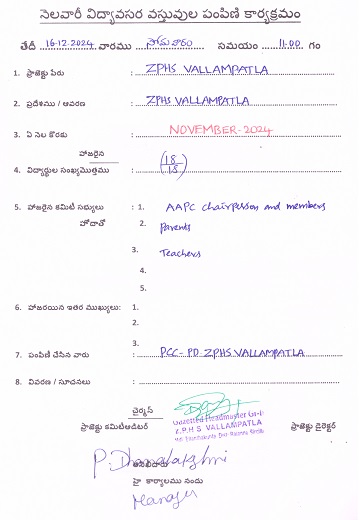 నెలవారీ విద్యావసర వస్తువుల పంపిణి కార్యక్రమం
తేదీ 16-12-2024 వారము సోమవారం సమయం 11.00 గం
1. ప్రాజెక్టు పేరు : ZPHS VALLAMPATLA
2. ప్రదేశము / ఆవరణ : ZPHS VALLAMPATLA
3. ఏ నెల కొరకు : NOVEMBER-2024
హాజరైన
4. విద్యార్థుల సంఖ్యమొత్తము : 18/18
5. హాజరైన కమిటి సభ్యులు : 1. AAPC chairperson and members
హోదాతో 2. Parents
3. Teachers
4.
5.
6. హాజరయిన ఇతర ముఖ్యులు: 1.
2.
3.
7. పంపిణి చేసిన వారు : PCC-PD ZPHS VALLAMPATLA
8. వివరణ / సూచనలు :
చైర్మన్
ప్రాజెక్టు కమిటిఆడిటర్
Gazetted Headmaster Gr-II
Z.P.H.S VALLAMPATLA
ప్రాజెక్టు డైరెక్టర్
P. Dhanalakshmi
హై కార్యాలము నందు
Manager